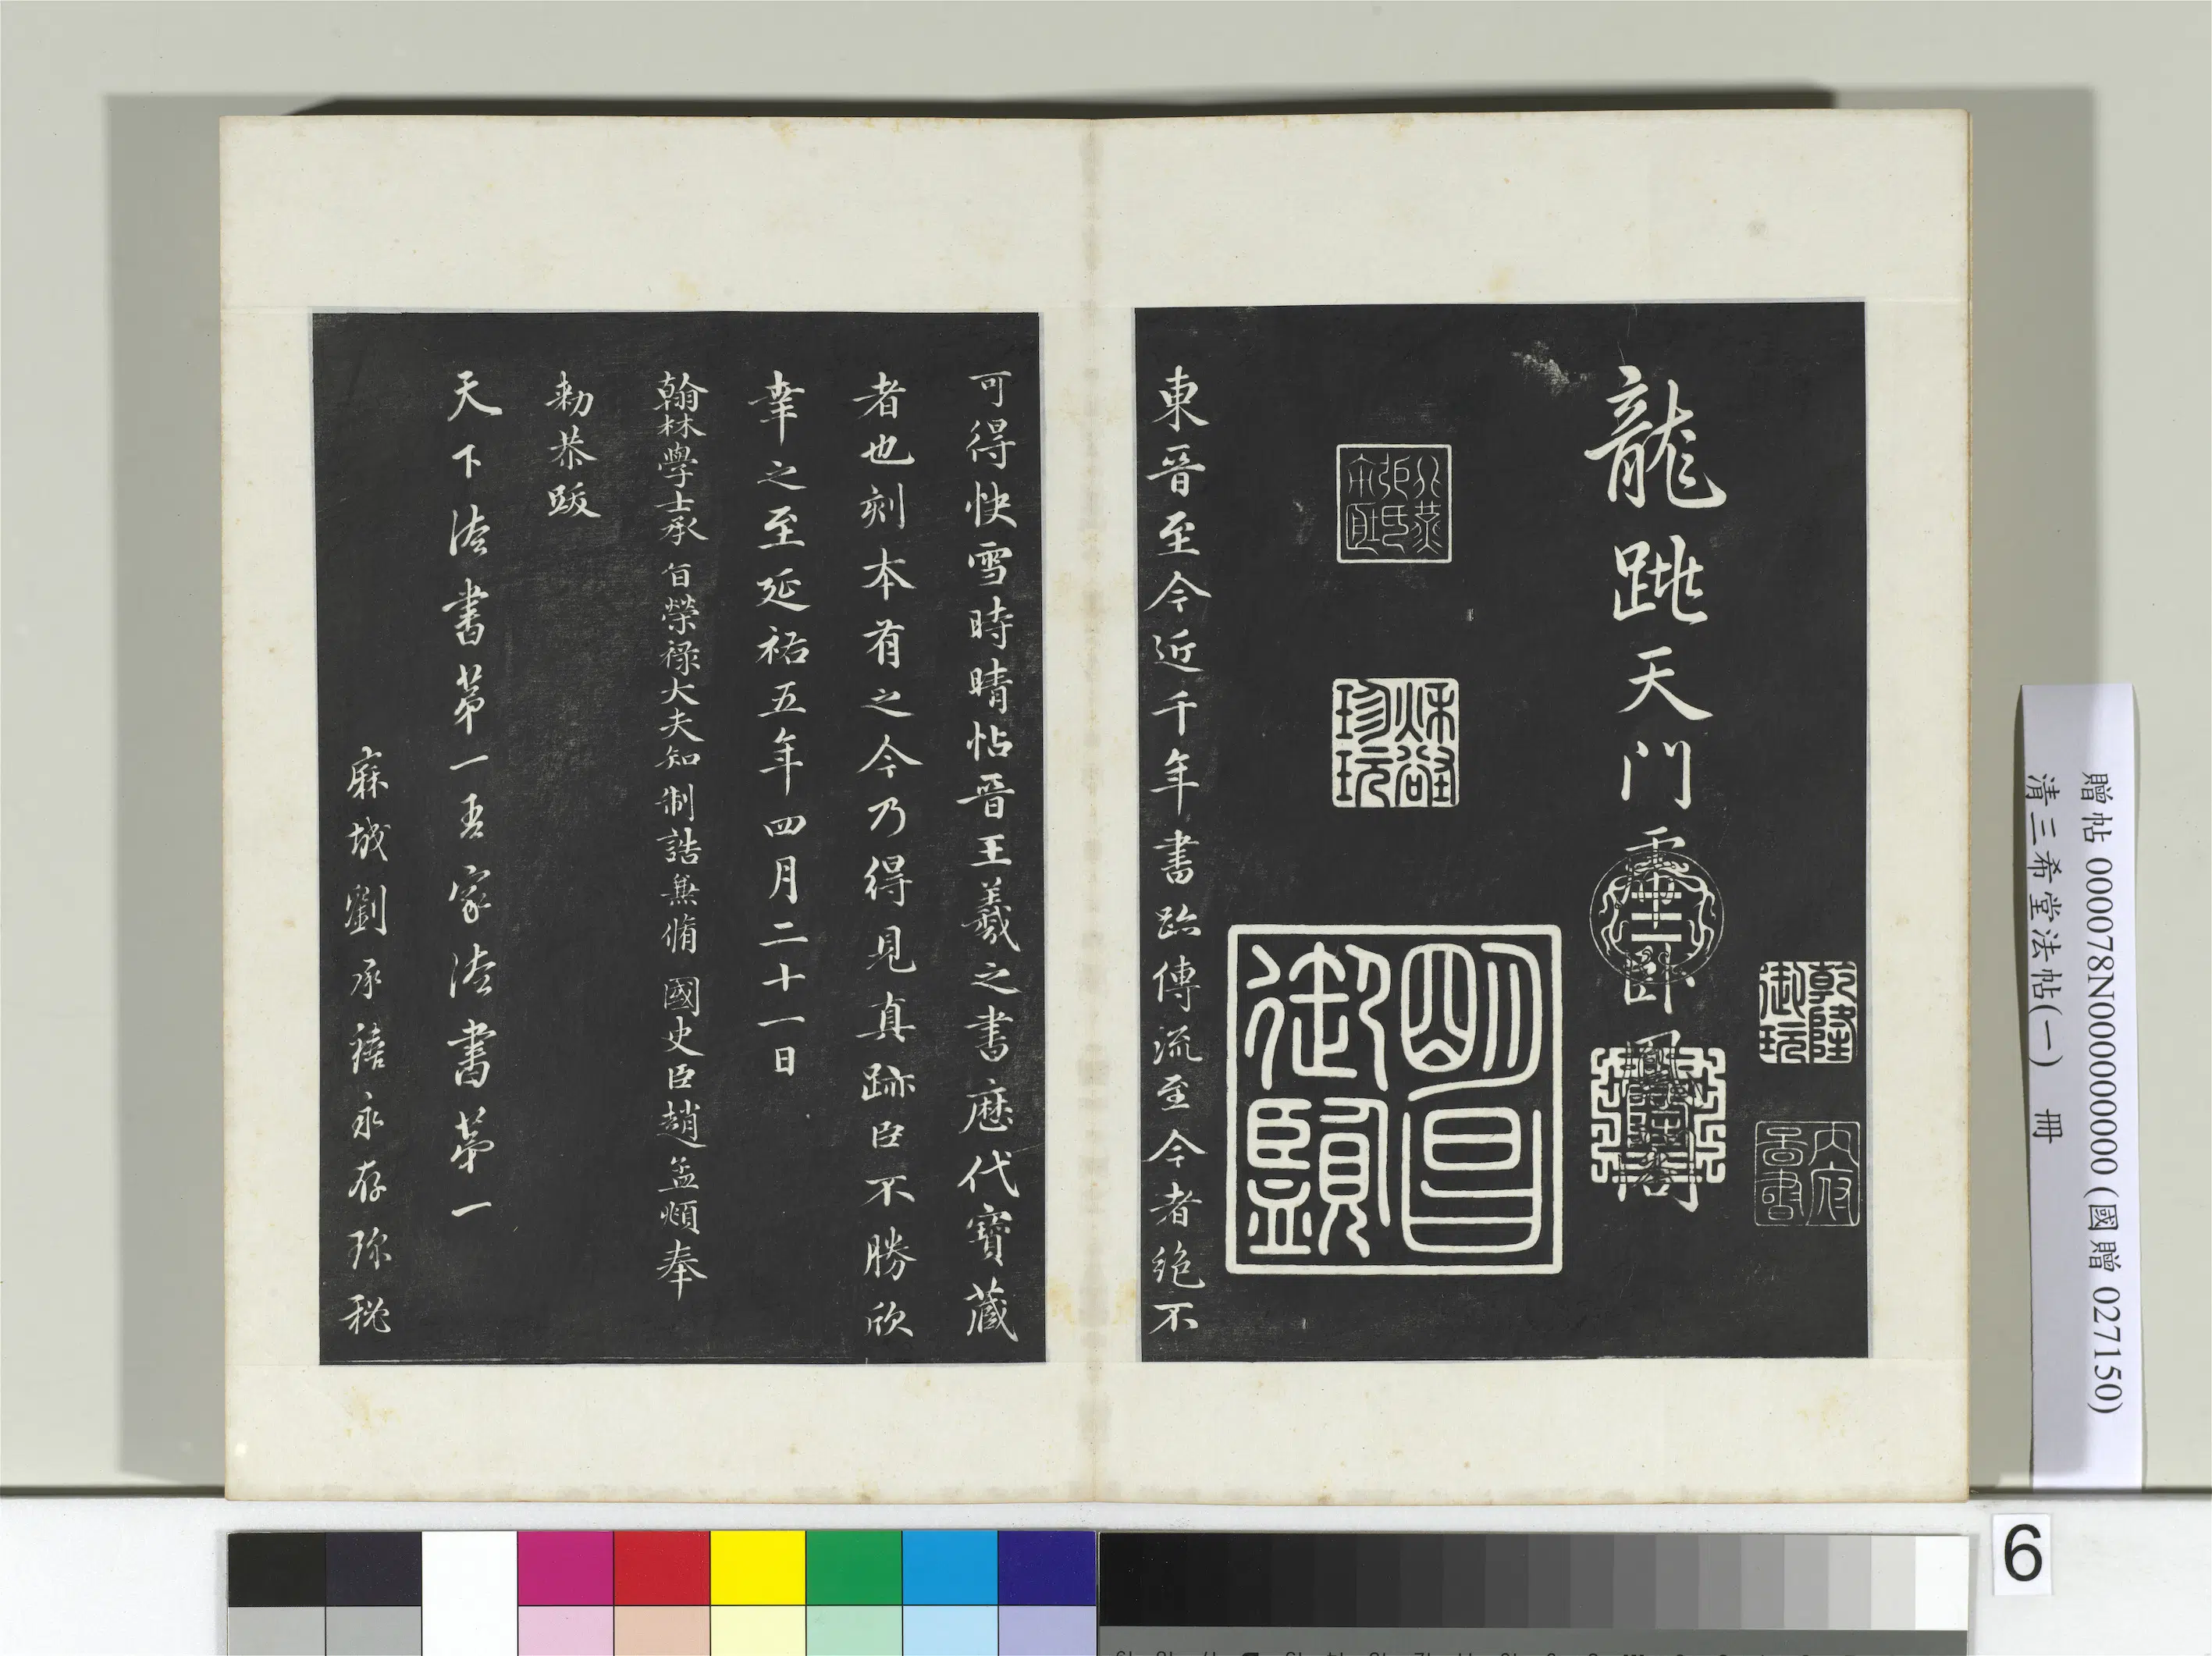 龍跳天門虎臥鳳閣
乾隆御玩
内府圖書
明昌御覽
珍玩
東晉至今近千年書跡傳流至今者絶不
可得快雪時晴帖晉王羲之書歷代寶藏
者也刻本有之今乃得見真跡臣不勝欣
幸之至延祐五年四月二十一日
翰林學士承旨榮祿大夫知制誥兼脩國史臣趙孟頫奉
勑恭跋
天下法書第一吾家法書第一
麻城劉承禧永存珎秘
贈帖 000078N000000000 (國贈 027150)
清三希堂法帖(一) 冊
6